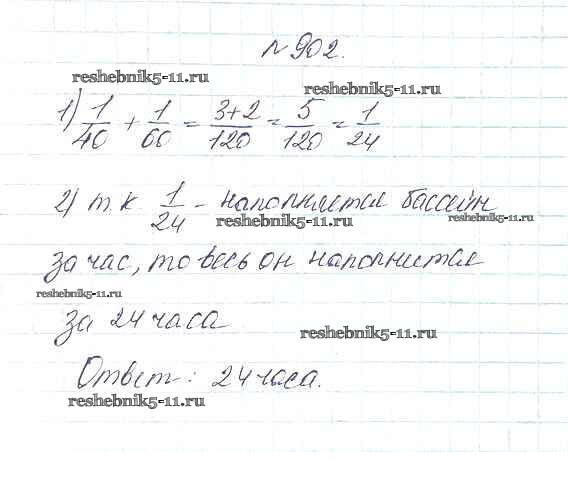 № 902.
reshebnik5-11.ru
1) 1/40 + 1/60 = 3+2/120 = 5/120 = 1/24
2) т.к. 1/24 - наполняется бассейн
reshebnik5-11.ru
reshebnik5-11.ru
за час, то весь он наполнится
reshebnik5-11.ru
за 24 часа
reshebnik5-11.ru
Ответ: 24 часа.
reshebnik5-11.ru